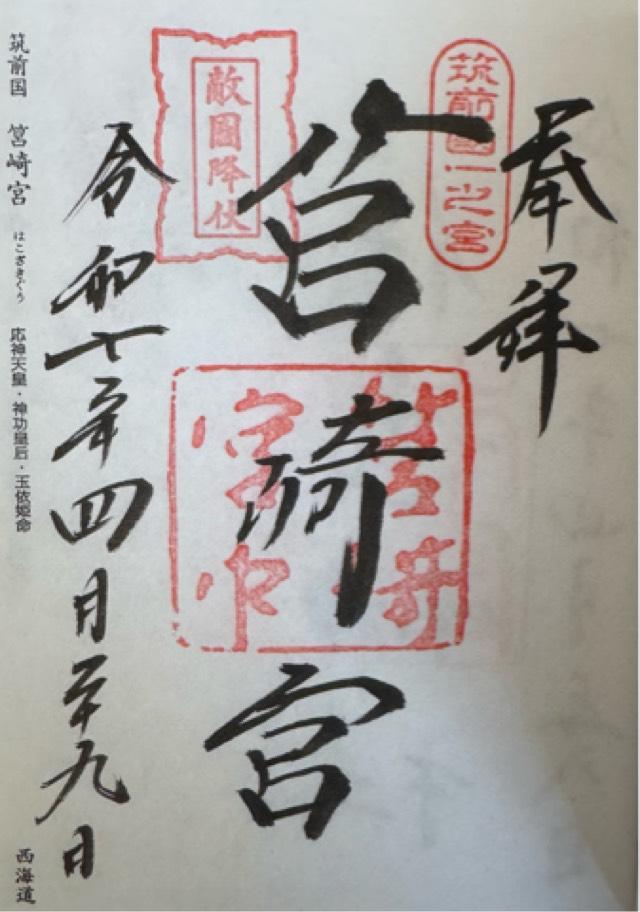 奉拝
筑前國一之宮
筥崎宮
敵國降伏
令和七年四月二十九日
筑前国 筥崎宮 はこざきぐう 応神天皇・神功皇后・玉依姫命
西海道